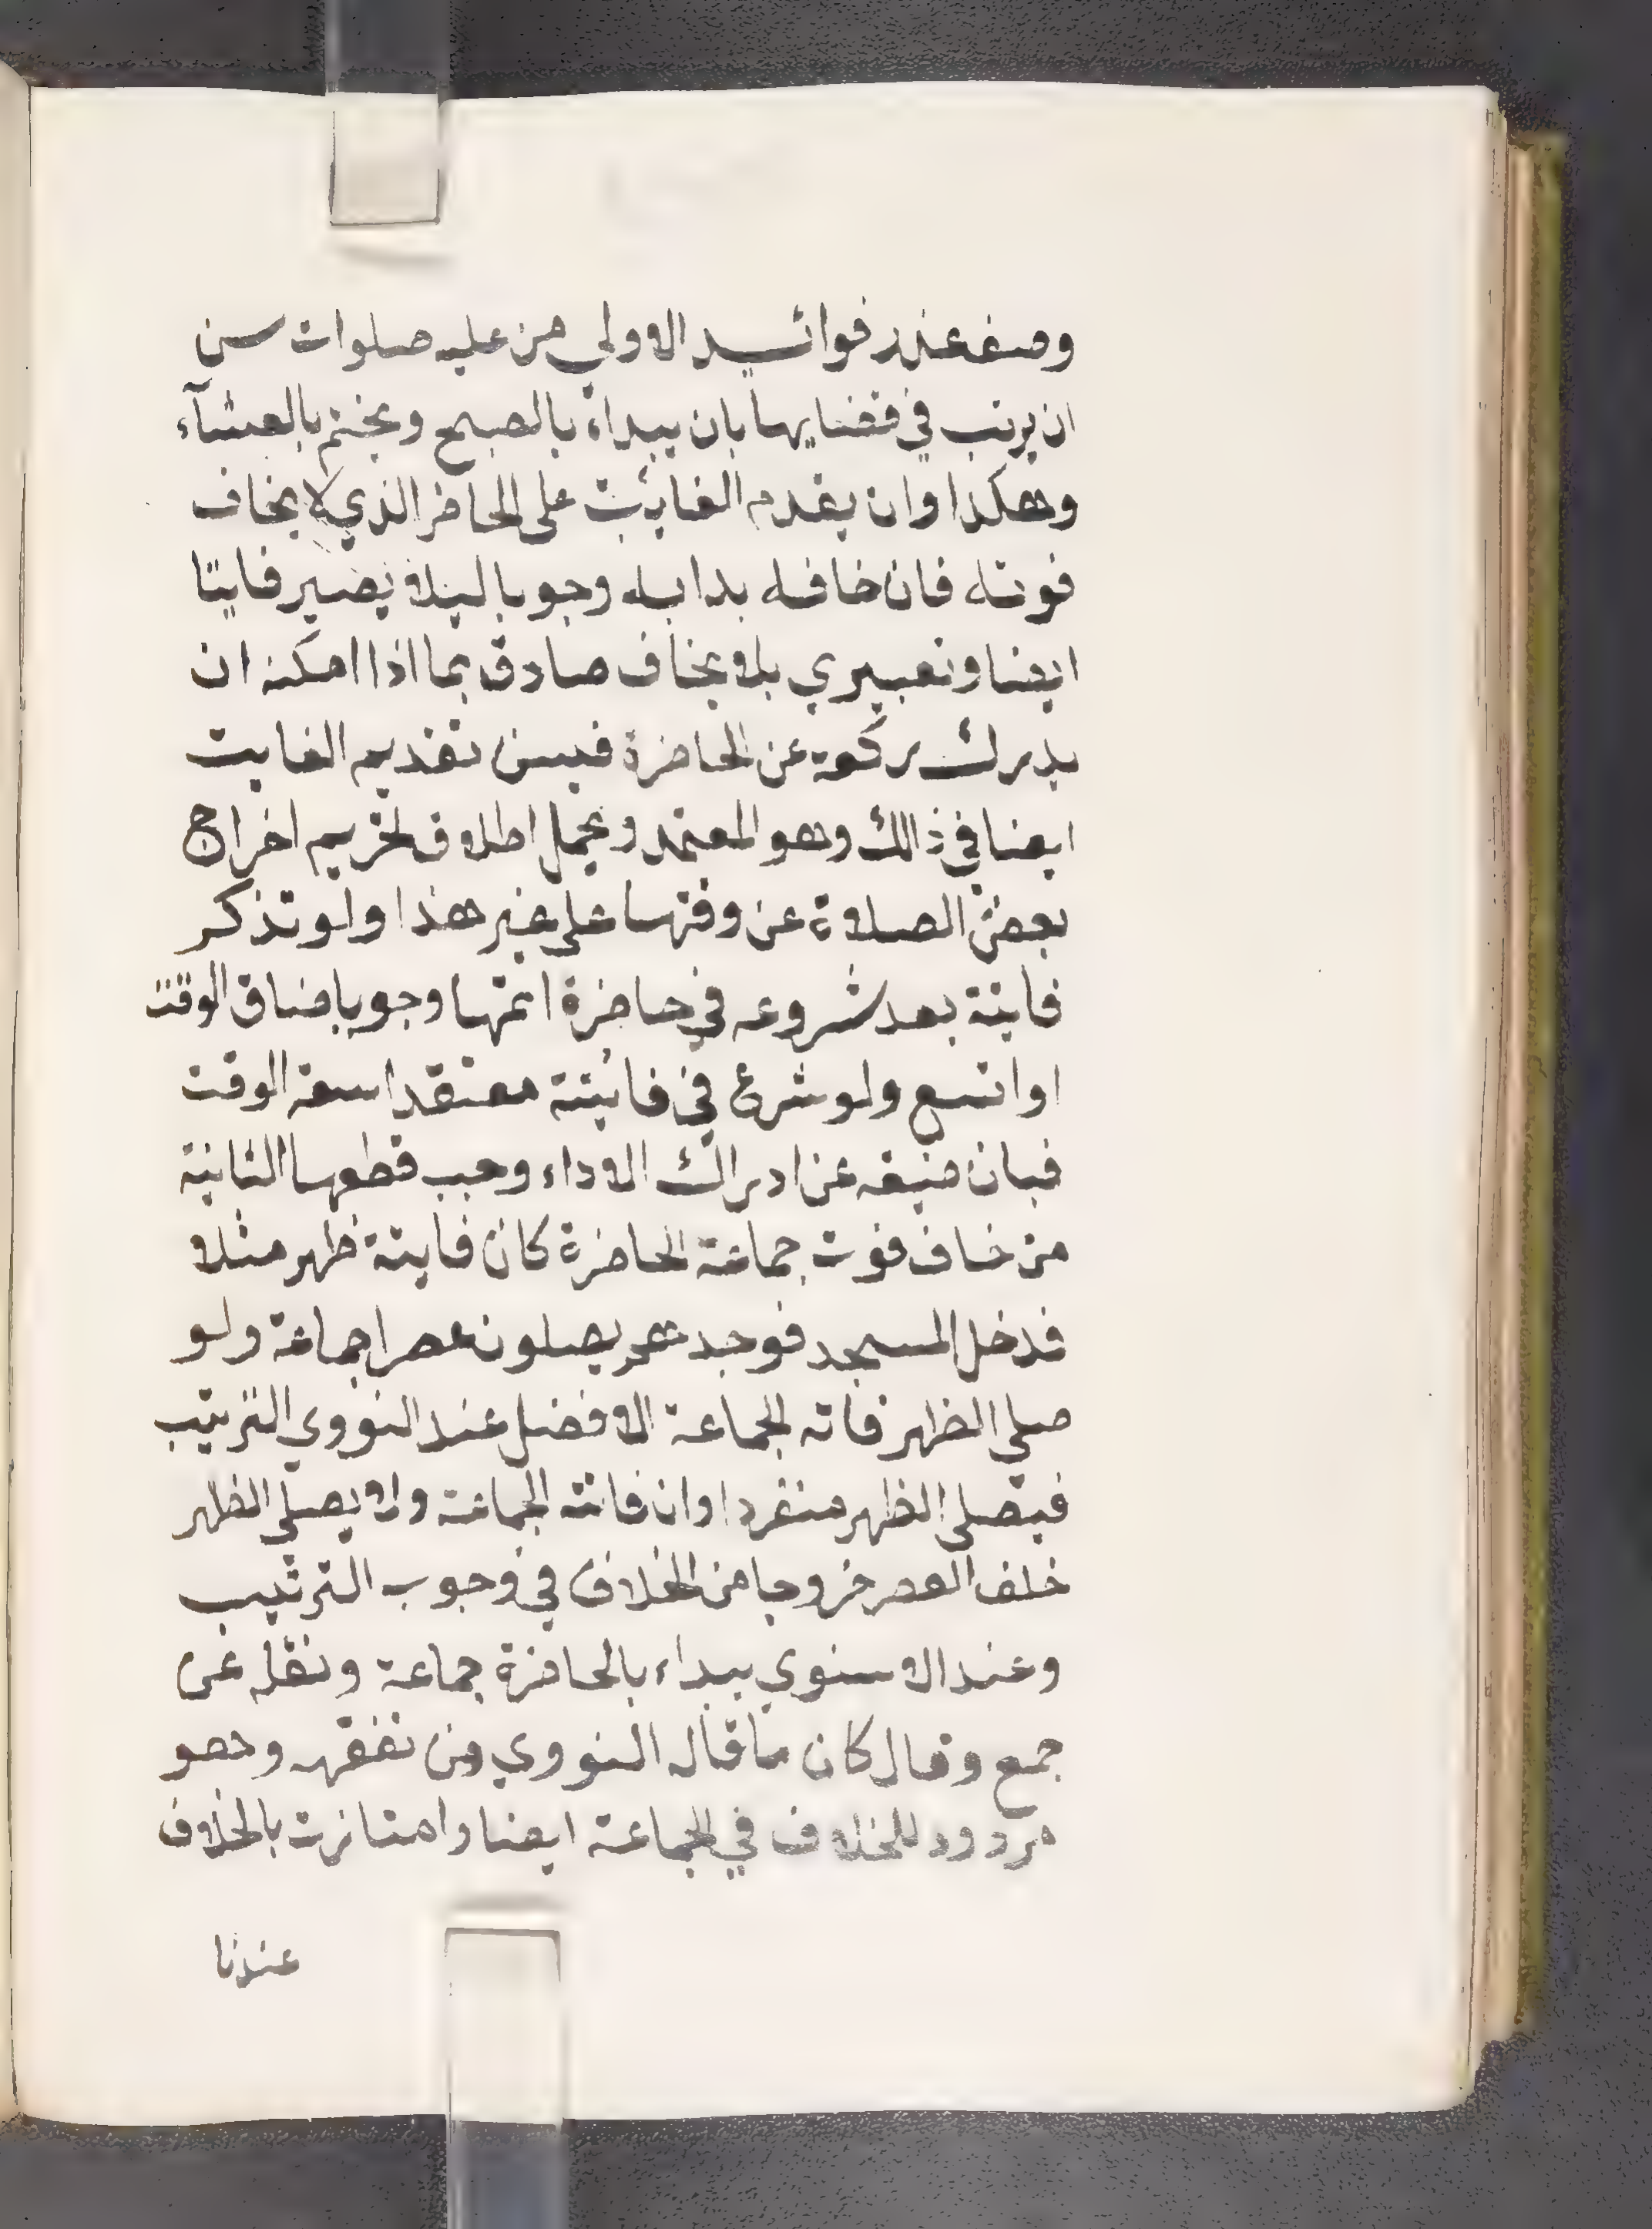 وصف عذر فوائد الاولي من عليه صلوات سن
ان يرتب في قضايها بان يبداء بالصبح ويختم بالعشآء
وهكذا وان يقدم الفايت على الحاضر الذي لا يخاف
فوته فان خافه بدا به وجوبا ليلا يصير فايتا
ايضا وتعبيري بلا يخاف صادق بما اذا امكنه ان
يدرك ركعة عن الحاضرة فيسن تقديم الفايت
ايضا في ذالك وهو المعتمد ويحمل اطلاق تحريم اخراج
بعض الصلاة عن وقتها على غير هذا ولو تذكر
فايتة بعد شروعه في حاضرة اتمها وجوبا ضاق الوقت
او اتسع ولو شرع في فائتة معتقدا سعة الوقت
فبان ضيقه عن ادراك الاداء وجب قطعها الثانية
من خاف فوت جماعة الحاضرة كان فايتة ظهر مثلا
فدخل المسجد فوجدهم يصلون عصرا جماعة ولو
صلى الظهر فاته الجماعة الافضل عند النووي الترتيب
فيصلى الظهر منفردا وان فاتته الجماعة ولا يصلى الظهر
خلف العصر خروجا من الخلاف في وجوب الترتيب
وعند الاسنوي يبداء بالحاضرة جماعة ونقله عن
جمع وقال كان ما قاله النووي من تفقهه وهو
مردود للخلاف في الجماعة ايضا وامتازت بالخلاف
عندنا